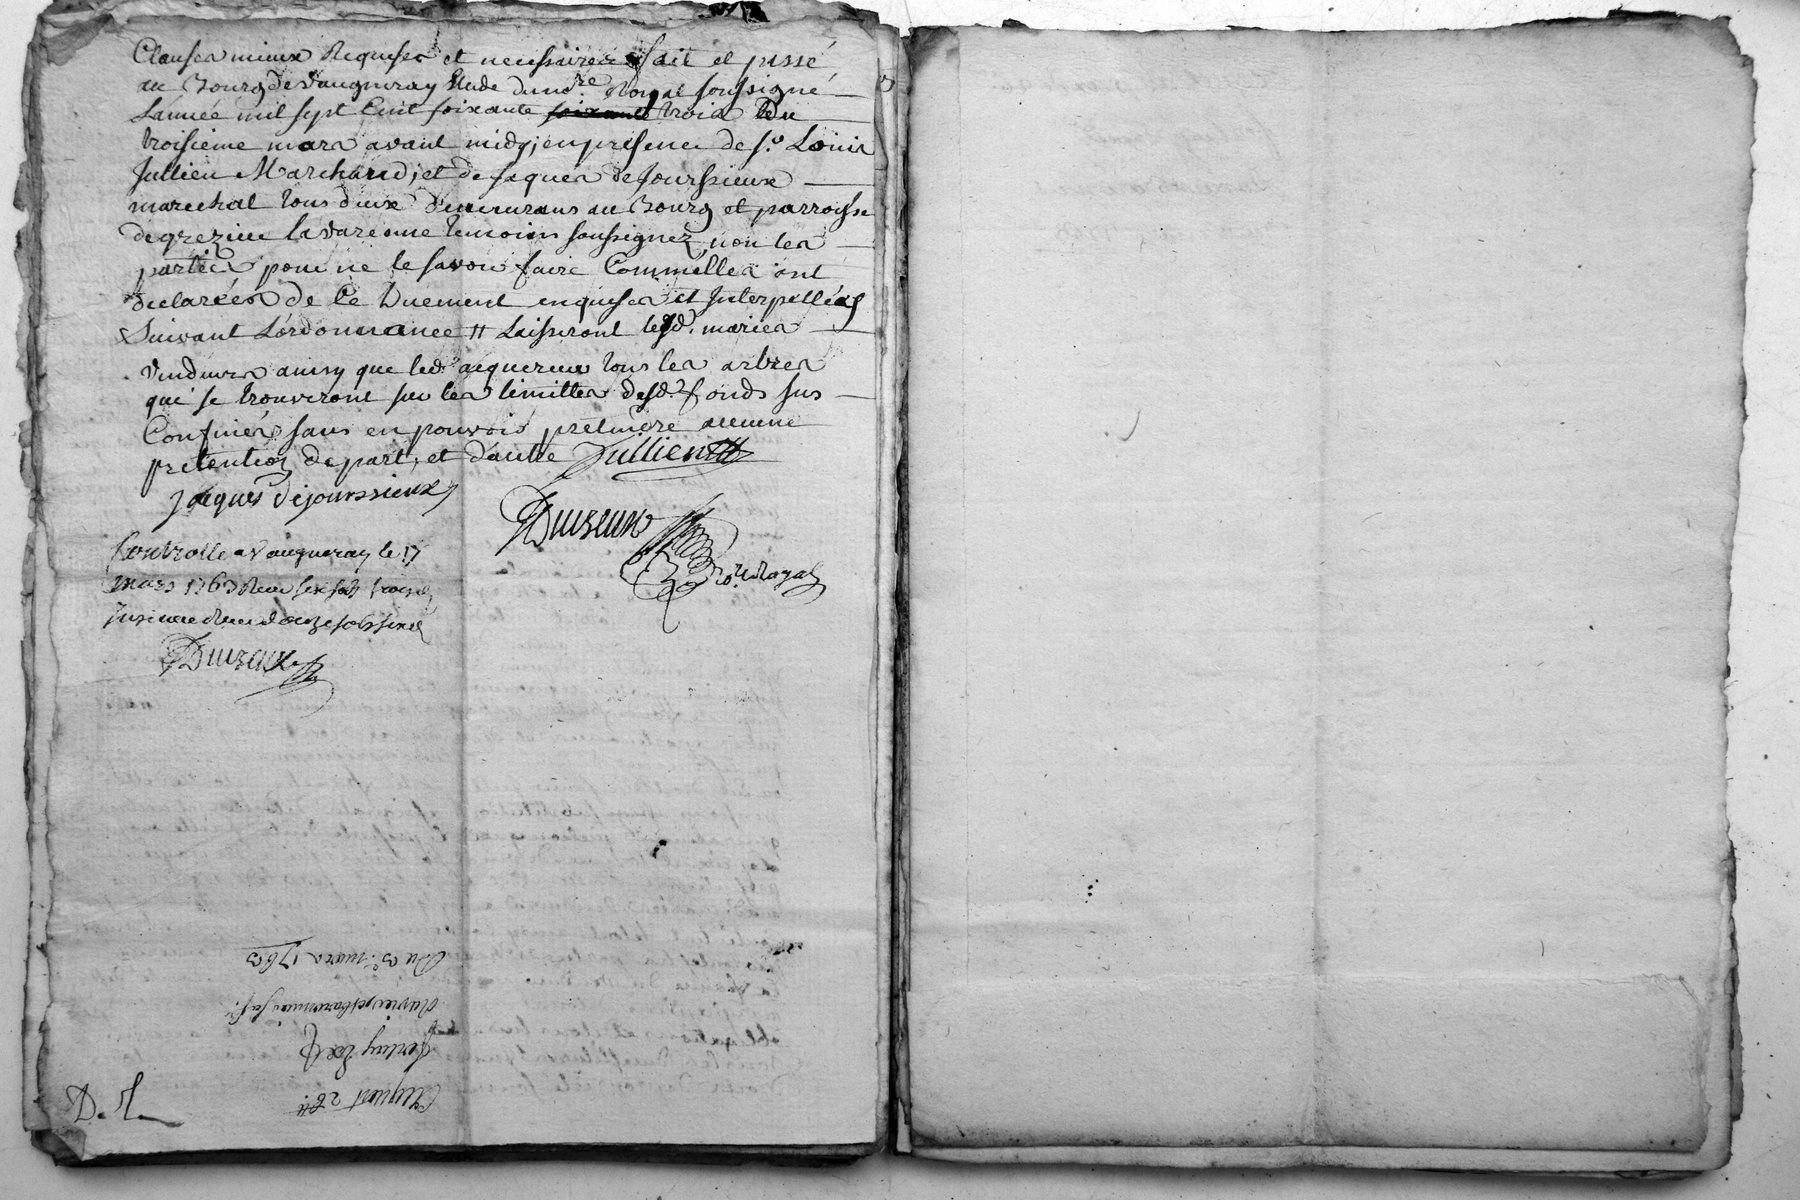 Clauses mieux Requises et necessaires fait et passé
au Bourg de Vaugneray Etude du no.re Royal soussigné
Lannée mil sept Cent soixante trois Le Du
troisieme mars avant midy; en presence de s.r Louis
Jullien Marchand; et de Jaques de Joursieux
marechal tous deux demeurans au Bourg et parroisse
de grezieu la varenne temoins soussignez, non les
parties pour ne le savoir faire Comm'elles ont
declarées de Ce Duement enquises et Interpellées
Suivant L'ordonnance // Laisseront lesd. mariés
Vendeurs ainsy que led. acquereur tous les arbres
qui se trouveront sur les limittes desd. fonds sus
Confinés sans en pouvoir pretendre aucune
pretention de part, et d'autre Jullien
Jacques dejoursieux
Duizeux
No.re Royal
Controllé a Vaugneray le 17
mars 1763 Reçu six sols
Insinué Reçu douze sols
Duizeux
D. J.
Du 3.e mars 1763